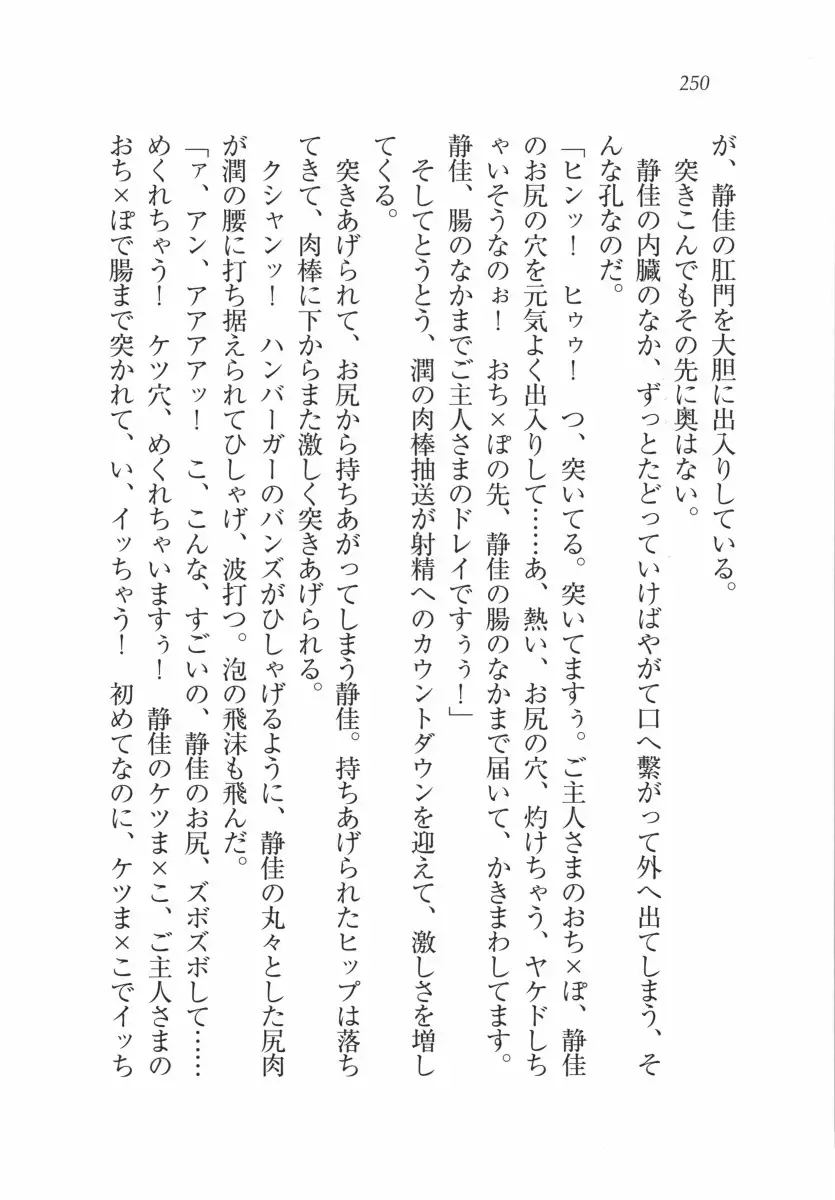 250
が、静佳の肛門を大胆に出入りしている。
突きこんでもその先に奥はない。
静佳の内臓のなか、ずっとたどっていけばやがて口へ繋がって外へ出てしまう、そ
んな孔なのだ。
「ヒンッ！　ヒゥゥ！　つ、突いてる。突いてますぅ。ご主人さまのおち×ぽ、静佳
のお尻の穴を元気よく出入りして……あ、熱い、お尻の穴、灼けちゃう、ヤケドしち
ゃいそうなのぉ！　おち×ぽの先、静佳の腸のなかまで届いて、かきまわしてます。
静佳、腸のなかまでご主人さまのドレイですぅぅ！」
そしてとうとう、潤の肉棒抽送が射精へのカウントダウンを迎えて、激しさを増し
てくる。
突きあげられて、お尻から持ちあがってしまう静佳。持ちあげられたヒップは落ち
てきて、肉棒に下からまた激しく突きあげられる。
クシャンッ！　ハンバーガーのバンズがひしゃげるように、静佳の丸々とした尻肉
が潤の腰に打ち据えられてひしゃげ、波打つ。泡の飛沫も飛んだ。
「ァ、アン、アアアアッ！　こ、こんな、すごいの、静佳のお尻、ズボズボして……
めくれちゃう！　ケツ穴、めくれちゃいますぅ！　静佳のケツま×こ、ご主人さまの
おち×ぽで腸まで突かれて、い、イッちゃう！　初めてなのに、ケツま×こでイッち